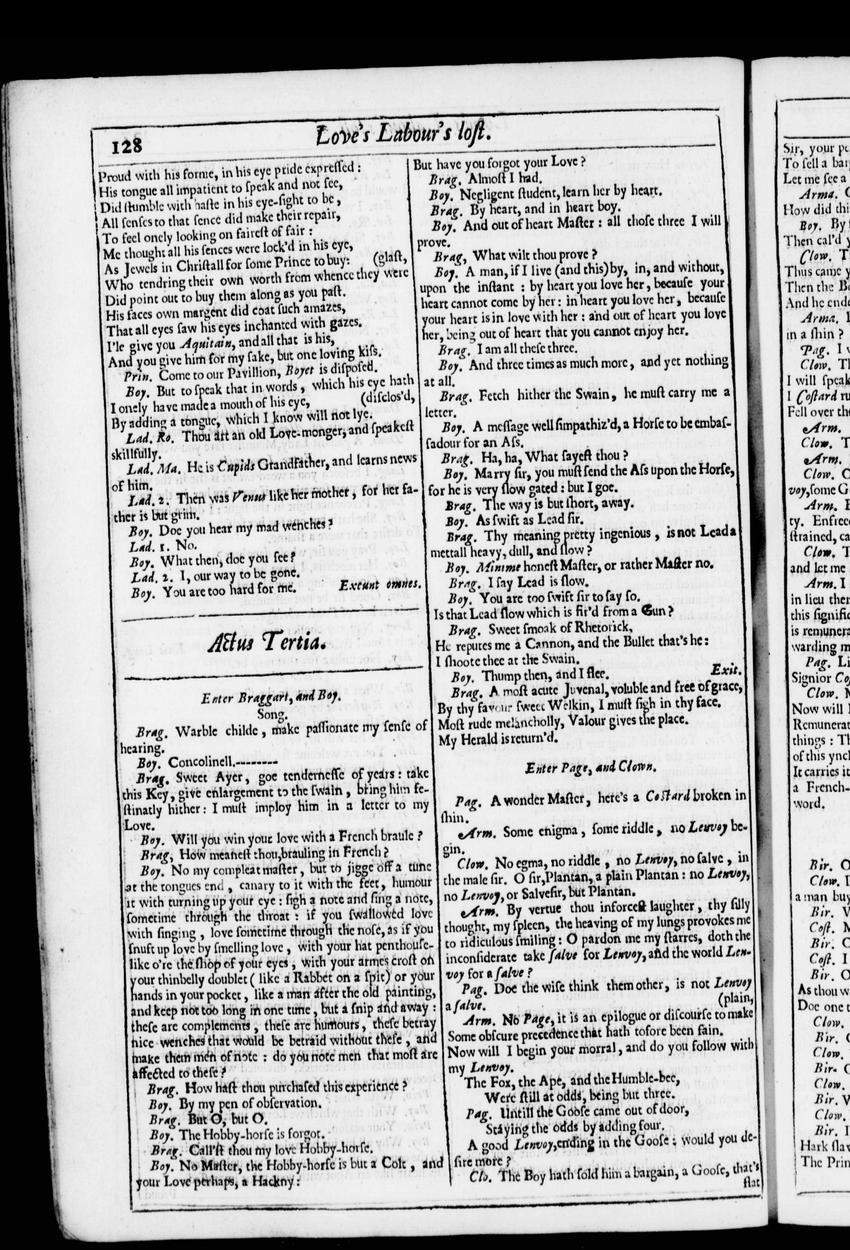 128
Love's Labour's lost.
Proud with his forme, in his eye pride expressed:
His tongue all impatient to speak and not see,
Did stumble with haste in his eye-sight to be,
All senses to that sence did make their repair,
To feel onely looking on fairest of fair:
Me thought all his sences were lock'd in his eye,
As Jewels in Christall for some Prince to buy: (glast,
Who tendring their own worth from whence they were
Did point out to buy them along as you past.
His faces own margent did coat such amazes,
That all eyes saw his eyes inchanted with gazes.
I'le give you Aquitain, and all that is his,
And you give him for my sake, but one loving kiss.
Prin. Come to our Pavillion, Boyet is disposed.
Boy. But to speak that in words, which his eye hath
I onely have made a mouth of his eye, (disclos'd,
By adding a tongue, which I know will not lye.
Lad. Ro. Thou art an old Love-monger, and speakest
skillfully.
Lad. Ma. He is Cupids Grandfather, and learns news
of him.
Lad. 2. Then was Venus like her mother, for her fa-
ther is but grim.
Boy. Doe you hear my mad wenches?
Lad. 1. No.
Boy. What then, doe you see?
Lad. 2. I, our way to be gone.
Boy. You are too hard for me. Exeunt omnes.
Actus Tertia.
Enter Braggart, and Boy.
Song.
Brag. Warble childe, make passionate my sense of
hearing.
Boy. Concolinell.--------
Brag. Sweet Ayer, goe tendernesse of years: take
this Key, give enlargement to the swain, bring him fe-
stinatly hither: I must imploy him in a letter to my
Love.
Boy. Will you win your love with a French braule?
Brag, How meanest thou, brauling in French?
Boy. No my compleat master, but to jigge off a tune
at the tongues end, canary to it with the feet, humour
it with turning up your eye: sigh a note and sing a note,
sometime through the throat: if you swallowed love
with singing, love sometime through the nose, as if you
snuft up love by smelling love, with your hat penthouse-
like o're the shop of your eyes, with your armes crost on
your thinbelly doublet (like a Rabbet on a spit) or your
hands in your pocket, like a man after the old painting,
and keep not too long in one tune, but a snip and away:
these are complements, these are humours, these betray
nice wenches that would be betraid without these, and
make them men of note: do you note men that most are
affected to these?
Brag. How hast thou purchased this experience?
Boy. By my pen of observation.
Brag. But O, but O.
Boy. The Hobby-horse is forgot.
Brag. Call'st thou my love Hobby-horse.
Boy. No Master, the Hobby-horse is but a Colt, and
your Love perhaps, a Hackny:
But have you forgot your Love?
Brag. Almost I had.
Boy. Negligent student, learn her by heart.
Brag. By heart, and in heart boy.
Boy. And out of heart Master: all those three I will
prove.
Brag, What wilt thou prove?
Boy. A man, if I live (and this) by, in, and without,
upon the instant: by heart you love her, because your
heart cannot come by her: in heart you love her, because
your heart is in love with her: and out of heart you love
her, being out of heart that you cannot enjoy her.
Brag. I am all these three.
Boy. And three times as much more, and yet nothing
at all.
Brag. Fetch hither the Swain, he must carry me a
letter.
Boy. A message well simpathiz'd, a Horse to be embas-
sadour for an Ass.
Brag. Ha, ha, What sayest thou?
Boy. Marry sir, you must send the Ass upon the Horse,
for he is very slow gated: but I goe.
Brag. The way is but short, away.
Boy. As swift as Lead sir.
Brag. Thy meaning pretty ingenious, is not Lead a
mettall heavy, dull, and slow?
Boy. Minime honest Master, or rather Master no.
Brag. I say Lead is slow.
Boy. You are too swift sir to say so.
Is that Lead slow which is fir'd from a Gun?
Brag. Sweet smoak of Rhetorick,
He reputes me a Cannon, and the Bullet that's he:
I shoote thee at the Swain.
Boy. Thump then, and I flee. Exit.
Brag. A most acute Juvenal, voluble and free of grace,
By thy favour sweet Welkin, I must sigh in thy face.
Most rude melancholly, Valour gives the place.
My Herald is return'd.
Enter Page, and Clown.
Pag. A wonder Master, here's a Costard broken in
shin.
Arm. Some enigma, some riddle, no Lenvoy be-
gin.
Clow. No egma, no riddle, no Lenvoy, no salve, in
the male sir. O sir, Plantan, a plain Plantan: no Lenvoy,
no Lenvoy, or Salve sir, but Plantan.
Arm. By vertue thou inforcest laughter, thy silly
thought, my spleen, the heaving of my lungs provokes me
to ridiculous smiling: O pardon me my starres, doth the
inconsiderate take salve for Lenvoy, and the world Len-
voy for a salve?
Pag. Doe the wise think them other, is not Lenvoy
a salve. (plain,
Arm. No Page, it is an epilogue or discourse to make
Some obscure precedence that hath tofore been sain.
Now will I begin your morral, and do you follow with
my Lenvoy.
The Fox, the Ape, and the Humble-bee,
Were still at odds, being but three.
Pag. Untill the Goose came out of door,
Staying the odds by adding four.
A good Lenvoy, ending in the Goose: would you de-
sire more?
Clo. The Boy hath sold him a bargain, a Goose, that's
flat
Sir, your p
To sell a bar
Let me see a
Arma. C
How did thi
Boy. By
Then cal'd y
Clow. T
Thus came y
Then the B
And he ende
Arma.
in a shin?
Pag. I
Clow. Th
I will speak
I Costard ru
Fell over the
Arm.
Clow. T
Arm.
Clow. O
voy, some G
Arm. B
ty. Enfree
strained, ca
Clow. T
and let me
Arm. I
in lieu ther
this signific
is remunera
warding m
Pag. Li
Signior Co
Clow. M
Now will I
Remunerat
things: Th
of this yncl
It carries it
a French-
word.
Bir. O
Clow. I
a man buy
Bir. W
Cost. M
Bir. O
Cost. I
Bir. O
As thou w
Doe one t
Clow.
Bir. C
Clow.
Bir. C
Clow.
Bir. W
Clow.
Bir. I
Hark slav
The Prin